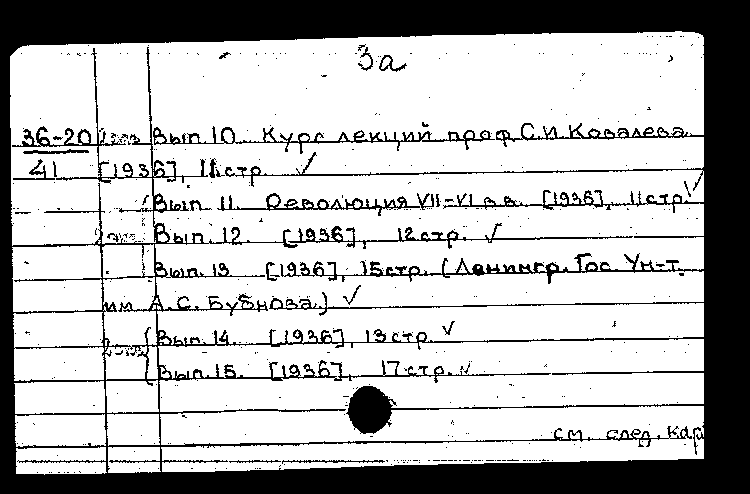 3а
36-20 2 экз Вып. 10. Курс лекций проф. С.И. Ковалева.
41 [1936], 11 стр. ✓
Вып. 11. Революция VII-VI в.в. [1936], 11 стр. ✓
2 экз Вып. 12. [1936], 12 стр. ✓
Вып. 13 [1936], 15 стр. (Ленингр. Гос. Ун-т.
им А.С. Бубнова.) ✓
2 экз Вып. 14. [1936], 13 стр. ✓
Вып. 15. [1936], 17 стр. ✓
см. след. кар